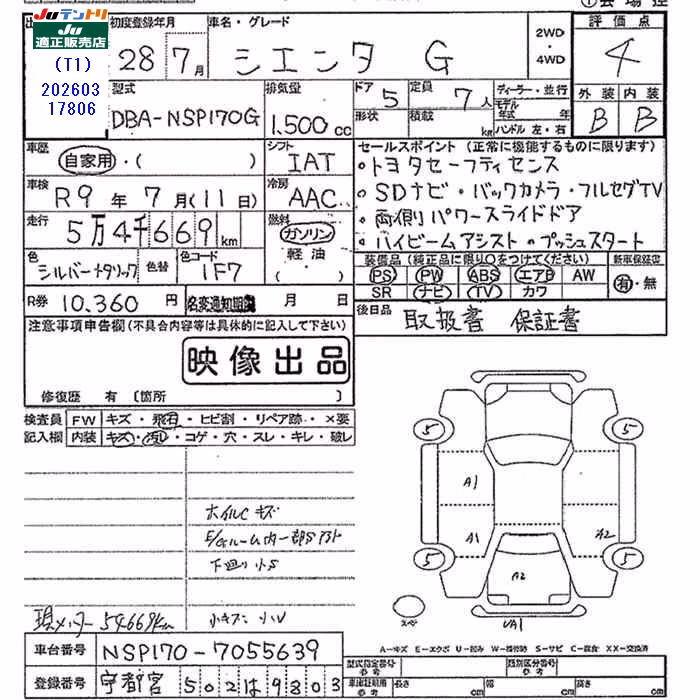 Juテントリ
Ju適正販売店
(T1)
202603
17806
初度登録年月
28年7月
車名・グレード
シエンタ G
2WD・4WD
評価点
4
型式
DBA-NSP170G
排気量
1,500cc
ドア
5
形状
定員
7人
積載
kg
ディーラー・並行
モデル年式 年
ハンドル 左・右
外装 内装
B B
車歴
自家用・( )
シフト
IAT
車検
R9年7月(11日)
冷房
AAC
走行
5万4千669km
燃料
ガソリン・軽油
( )
色
シルバーメタリック
色替
色コード
1F7
R券 10,360円
名変通知期限 月 日
セールスポイント(正常に機能するものに限ります)
・トヨタセーフティセンス
・SDナビ・バックカメラ・フルセグTV
・両側パワースライドドア
・ハイビームアシスト・プッシュスタート
装備品(純正品に限り○をつけてください)
PS PW ABS エアB AW
SR ナビ TV カワ
新車保証書
有・無
後日品
取扱書 保証書
注意事項申告欄(不具合内容等は具体的に記入して下さい)
映像出品
修復歴 有〔箇所 〕
検査員記入欄
FW キズ・飛石・ヒビ割・リペア跡・×要
内装 キズ・汚レ・コゲ・穴・スレ・キレ・破レ
ホイルCキズ
E/Gルーム内一部Sアト
下廻り小S
現メーター54669km
小キズ 小U
5
5
5
5
A1
A1
A2
A2
UA1
スペア
A-キズ E-エクボ U-凹み W-補修跡 S-サビ C-腐食 XX-交換済
車台番号 NSP170-7055639
登録番号 宇都宮 502は9803
型式指定番号
参考
類別区分番号
参考
車庫証明用
参考
長さ cm
幅 cm
高さ cm